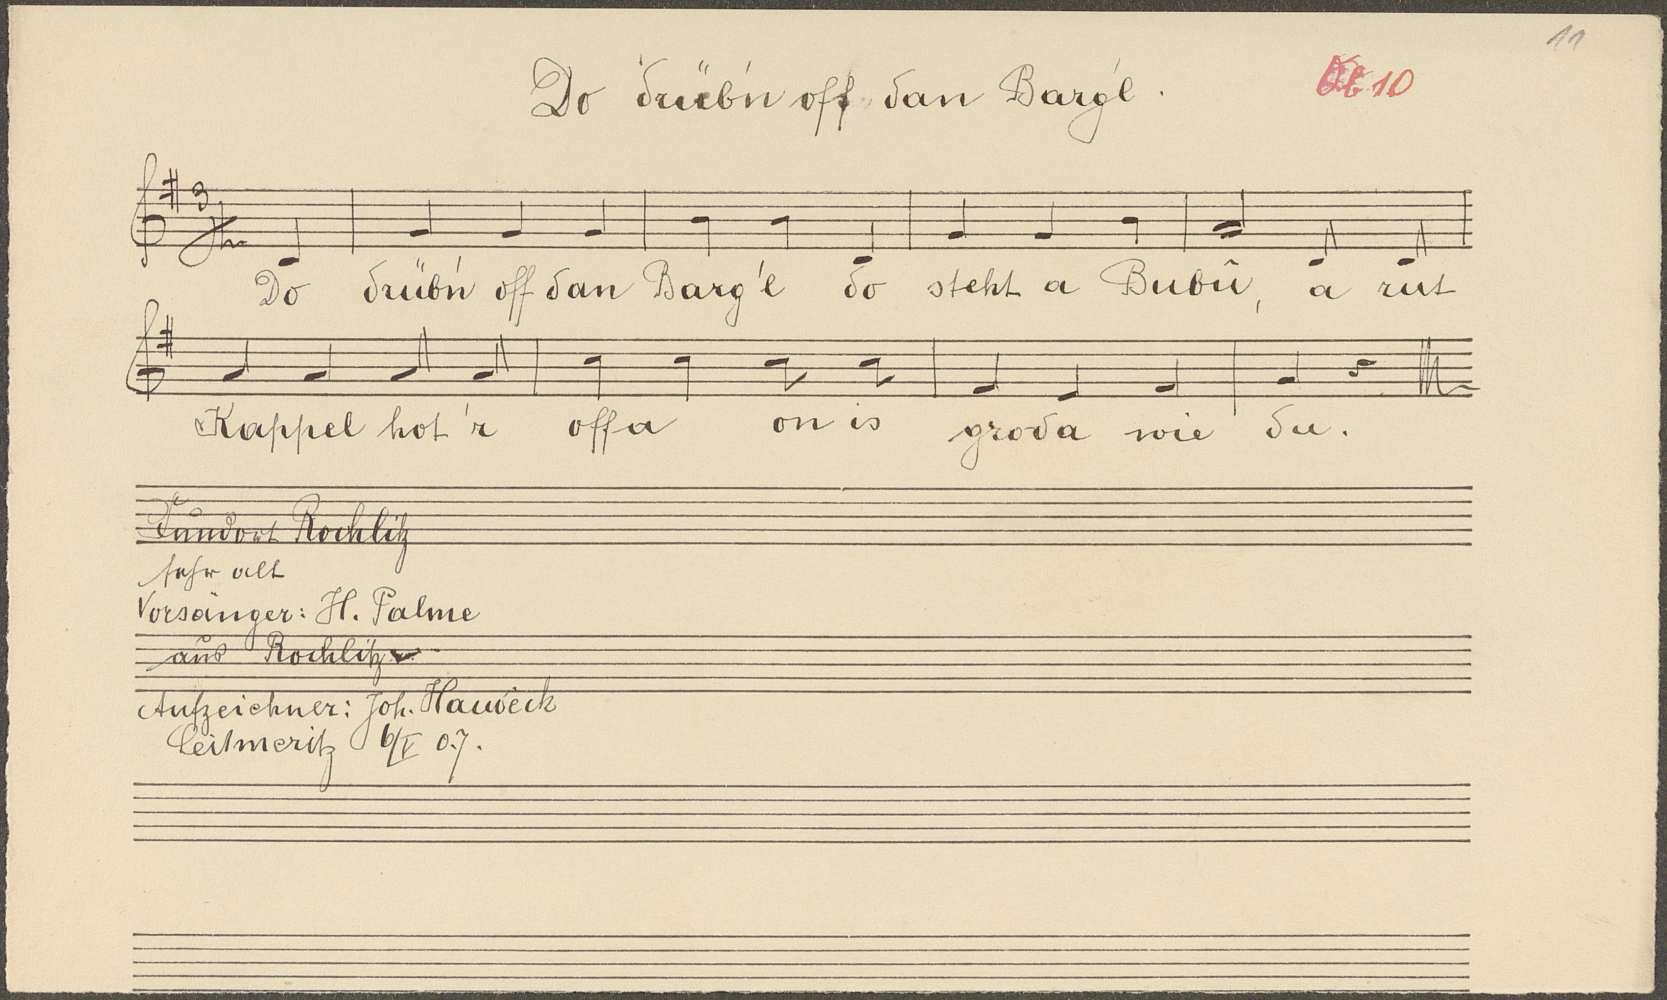 11
10
Do drüb'n off dan Barg'l.
3/4
Do drüb'n off dan Barg'l do steht a Bubû, a rut
Kappel hot'r offa on is groda wie du.
Fundort Rochlitz
sehr alt
Vorsänger: H. Palme
aus Rochlitz
Aufzeichner: Joh.
Leitmeritz 6/V 07.